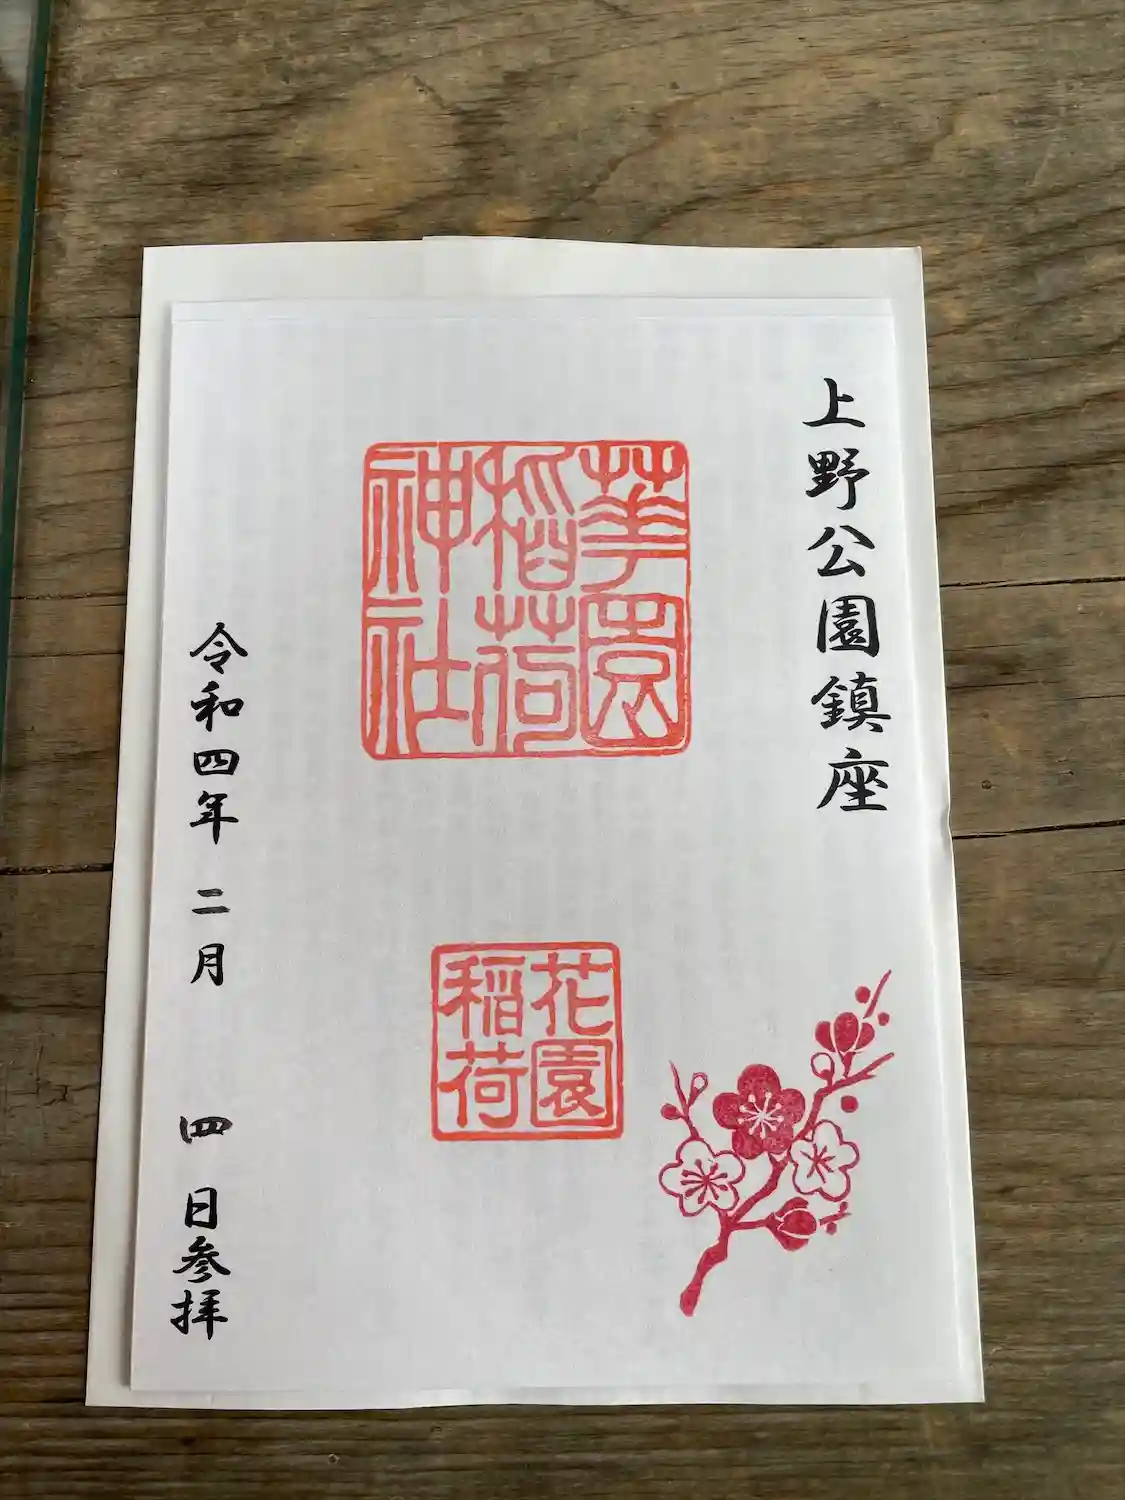 上野公園鎮座
華園
稲荷
神社
花園
稲荷
令和四年 二月 四 日参拝